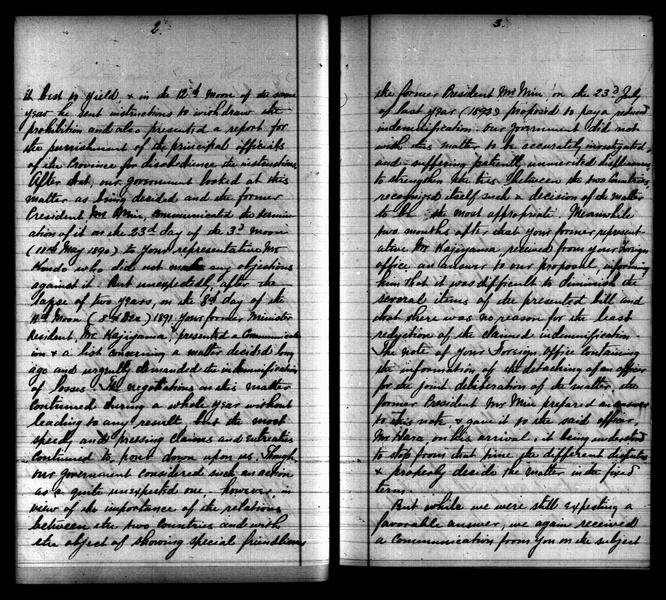 2.
it best to yield & in the 12th Moon of the same
year he sent instructions to withdraw the
prohibition and also presented a report for
the punishment of the principal officials
of the Province for disobedience the instructions
After that, our government looked at this
matter as being decided and the former
President Mr Min, communicated the termina
tion of it on the 23rd day of the 3rd moon
May 1890) to your representative Mr
Kondo who did not make any objections
against it. But unexpectedly, after the
lapse of two years, on the 8th day of the
11th Moon (8th Dec) 1891 your former Minister
Resident, Mr Kajiyama, presented a Communicat
ion & a list concerning a matter decided long
ago and urgently demanded the indemnification
of losses. The negotiations on this matter
continued during a whole year without
leading to any result but the most
speedy and pressing claims and entreaties
continued to pour down upon us. Though
our government considered such an action
as a quite unexpected one, however in
view of the importance of the relations
between the two Countries and with
the object of showing special friendliness
3.
the former President Mr Min on the 23rd
of last year (1892) proposed to pay a reduced
indemnification. Our Government did not
wish this matter to be accurately investigated,
and suffering patiently unmerited displeasure
to strengthen the ties between the two Countries,
recognized itself such a decision of the matter
to be the most appropriate. Meanwhile
two months after that your former represent-
ative Mr Kajiyama, received from your Foreign
office an answer to our proposal, informing
him that it was difficult to diminish the
several items of the presented bill and
that there was no reason for the least
reduction of the claimed indemnification
The note of your Foreign Office containing
the information of the detaching of an officer
for the joint deliberation of the matter, the
former President Mr Min prepared an answer
to this note & gave it to the said officer
Mr Hara, on his arrival, it being understood
to stop from that time the different disputes
& properly decide the matter in the fixed
term.
But while we were still expecting a
favorable answer, we again received
a Communication from you on the subject